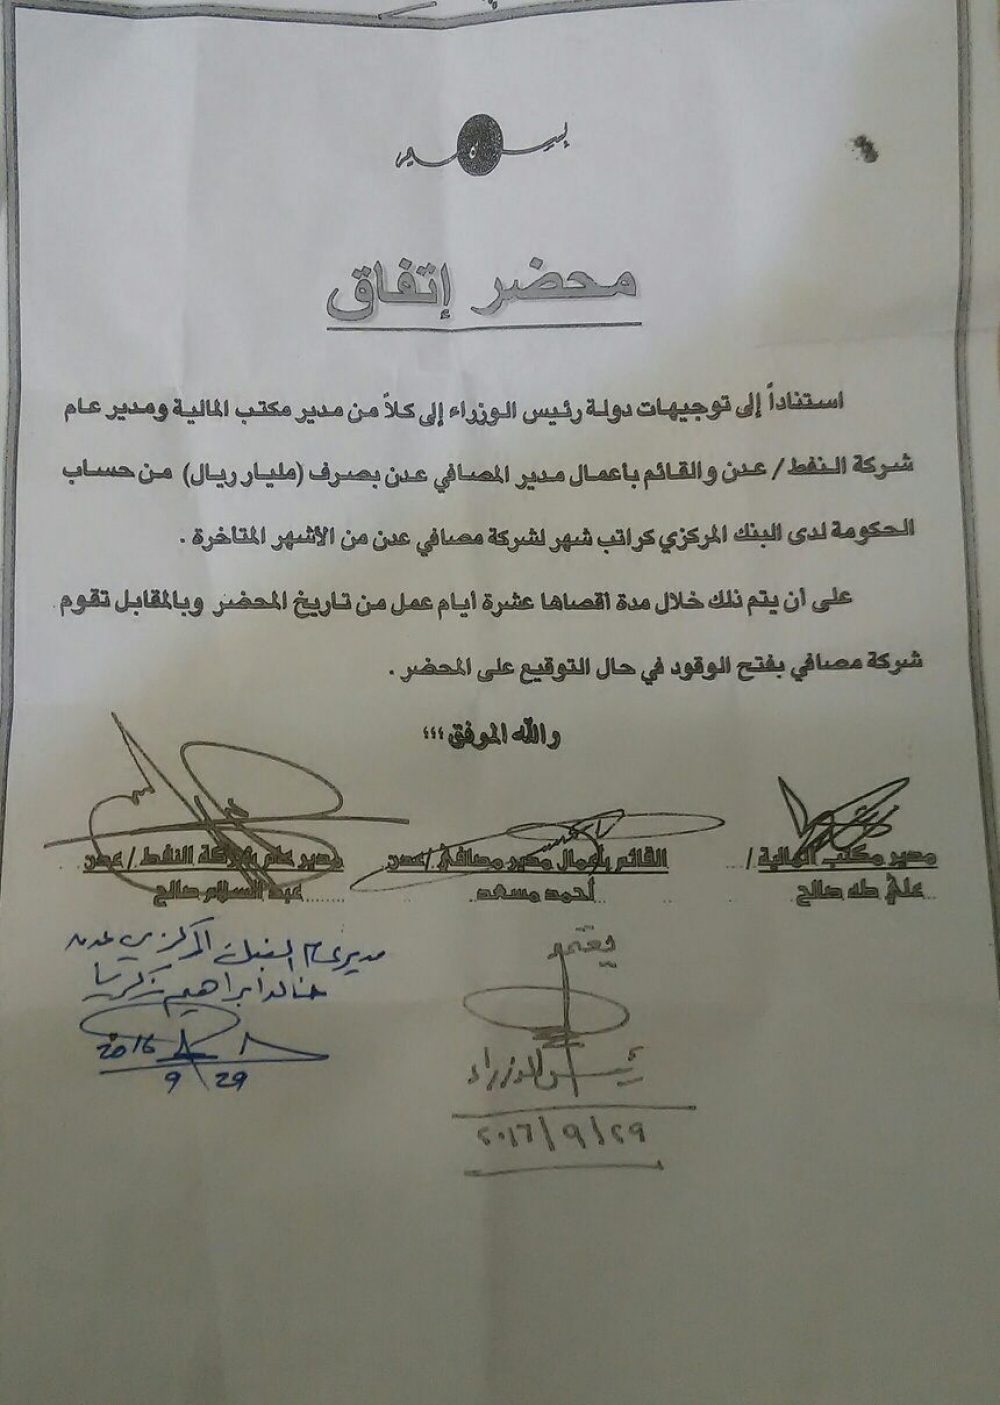 محضر إتفاق
استناداً إلى توجيهات دولة رئيس الوزراء إلى كلاً من مدير مكتب المالية ومدير عام
شركة النفط / عدن والقائم بأعمال مدير المصافي عدن بصرف (مليار ريال) من حساب
الحكومة لدى البنك المركزي كراتب شهر لشركة مصافي عدن من الأشهر المتاخرة .
على أن يتم ذلك خلال مدة أقصاها عشرة أيام عمل من تاريخ المحضر وبالمقابل تقوم
شركة مصافي بفتح الوقود في حال التوقيع على المحضر .
والله الموفق ،،،
مدير مكتب المالية / القائم بأعمال مدير مصافي / عدن مدير عام شركة النفط / عدن
علي طه صالح أحمد مسعد عبدالسلام صالح
يعتمد
رئيس الوزراء
٢٠١٦/٩/٢٩
مدير عام البنك المركزي عدن
خالد ابراهيم زكريا
2016
9/29